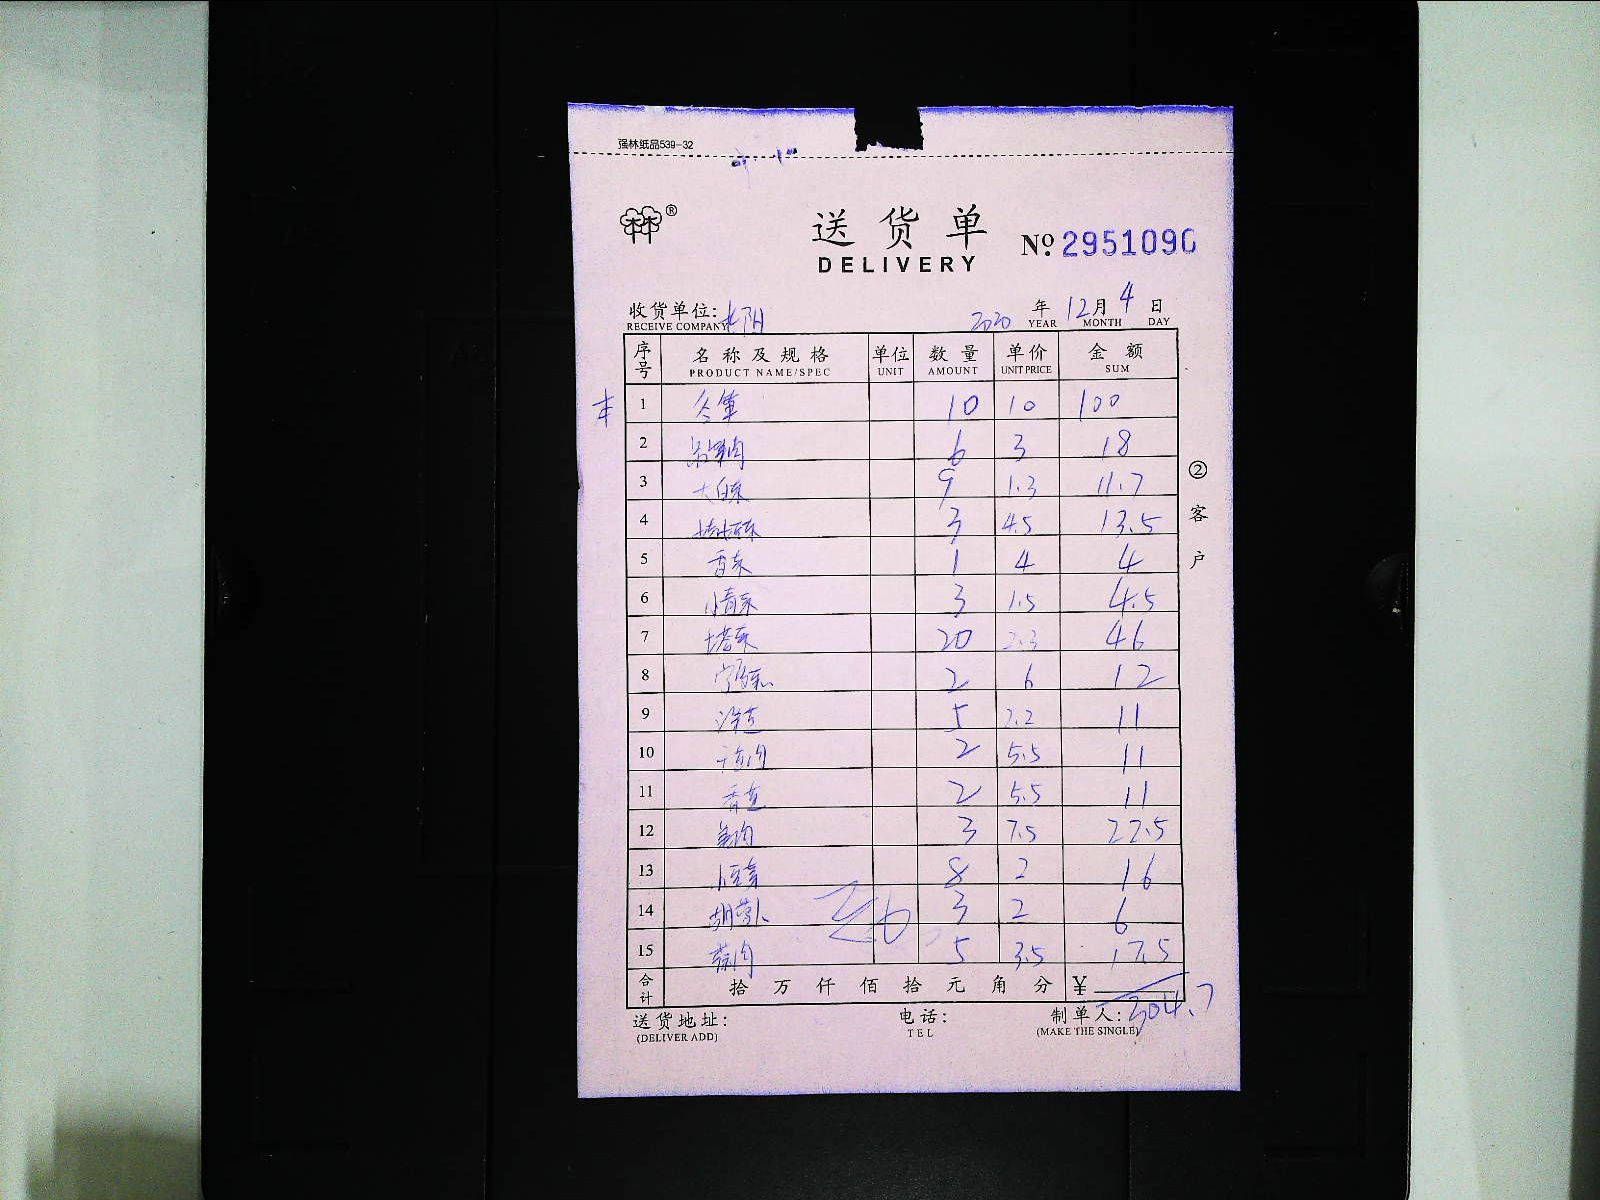 强林纸品539-32
®
送货单
DELIVERY
№ 2951090
收货单位: 长阳 2020 年 12 月 4 日
RECEIVE COMPANY YEAR MONTH DAY
序号 名称及规格 单位 数量 单价 金额
PRODUCT NAME/SPEC UNIT AMOUNT UNIT PRICE SUM
1 冬笋 10 10 100
2 6 3 18
3 大白菜 9 1.3 11.7
4 3 4.5 13.5
5 香菜 1 4 4
6 小青菜 3 1.5 4.5
7 塔菜 20 2.3 46
8 2 6 12
9 洋芋 5 2.2 11
10 2 5.5 11
11 香芹 2 5.5 11
12 姜肉 3 7.5 22.5
13 小豆芽 8 2 16
14 胡萝卜 3 2 6
15 蒜肉 5 3.5 17.5
合计 拾 万 仟 佰 拾 元 角 分 ¥ 304.7
送货地址: 电话: 制单人:
(DELIVER ADD) TEL (MAKE THE SINGLE)
②客户